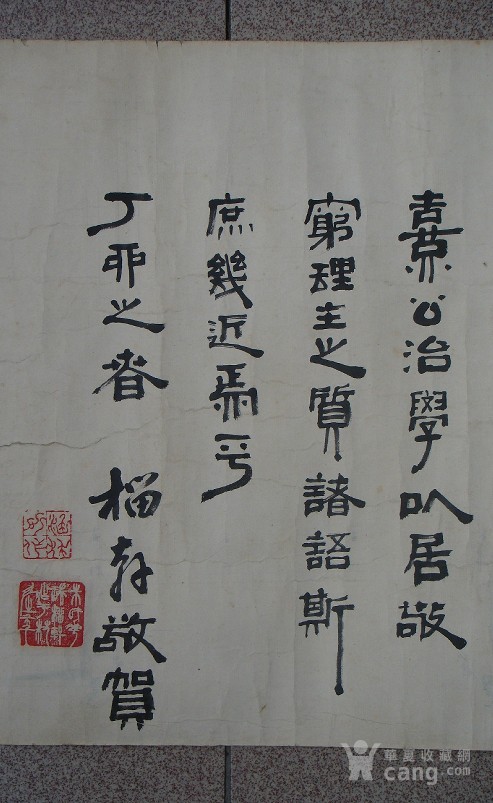 熹公治學以居敬
窮理主之質諸語斯
庶幾近焉乎
丁卯之春 榴 敬賀
華夏收藏網
cang.com